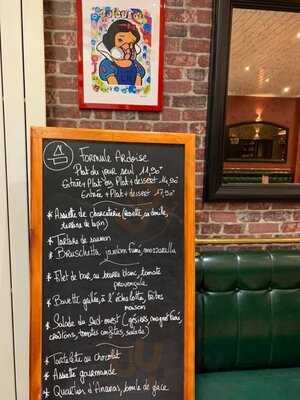 Formule Ardoise
Plat du jour seul 11,90€
Entrée + Plat ou Plat + dessert 14,90€
Entrée + Plat + dessert 17,90€
* Assiette de charcuterie (
rillettes de
* Tartare de saumon
* Bruschetta jambon fumé, mozzarella
* Filet de bar, au beurre blanc, tomate
provençale
* Bavette grillée, à l'échalotte, frites
maison
* Salade du Sud-ouest (gésiers, magret fumé,
croûtons, tomates confites, salade)
* Tartelette au chocolat
* Assiette gourmande
* Quartiers d'Ananas, boule de glace